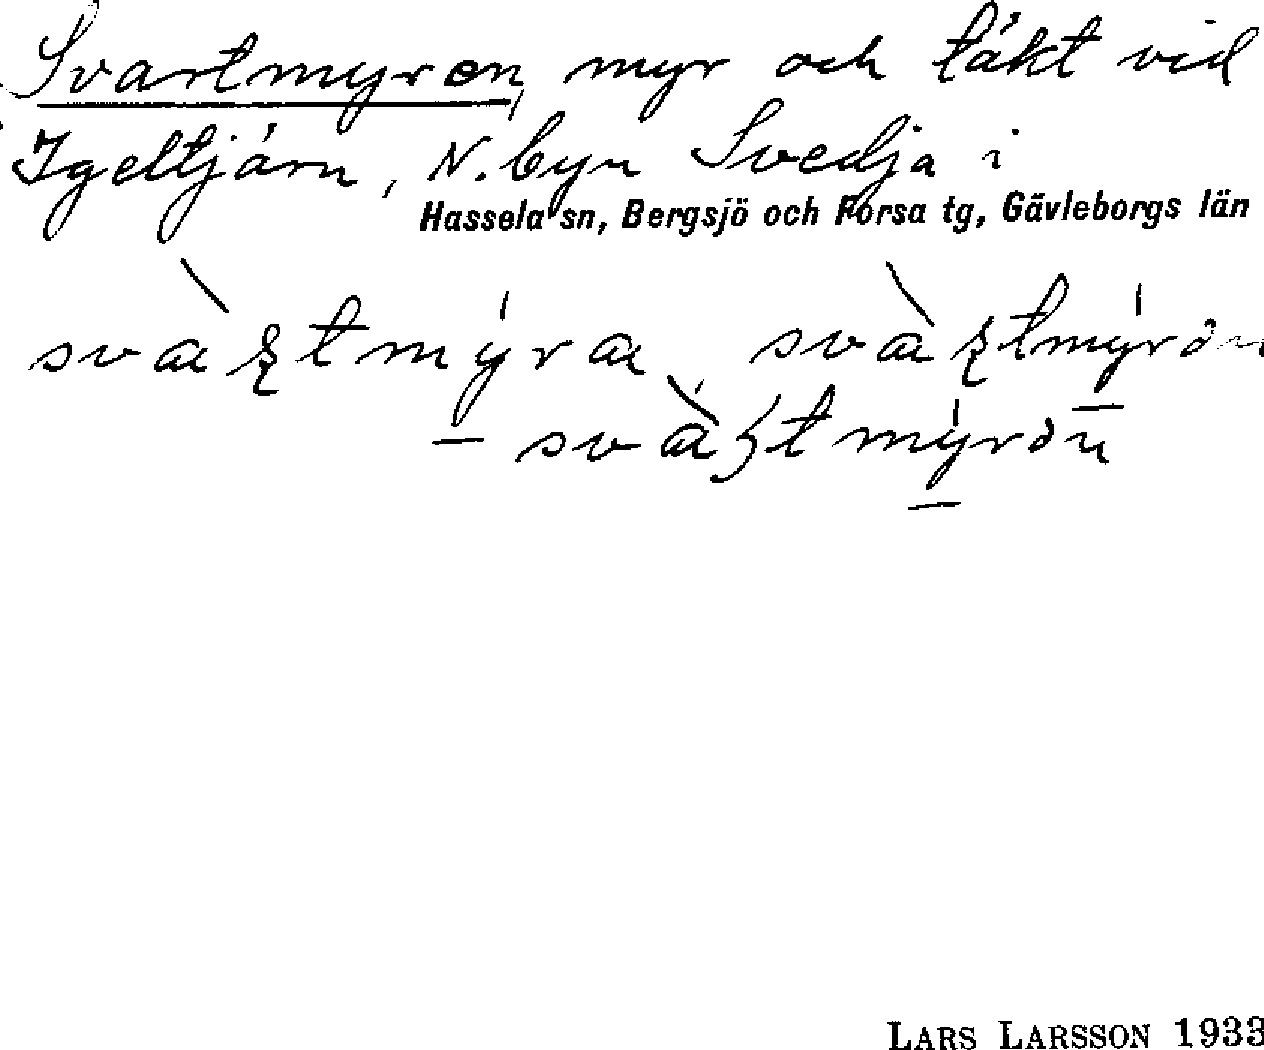 Svartmyren, myr och täkt vid
Igeltjärn, N. byn Svedja i
Hassela sn, Bergsjö och Forsa tg, Gävleborgs län
LARS LARSSON 1933